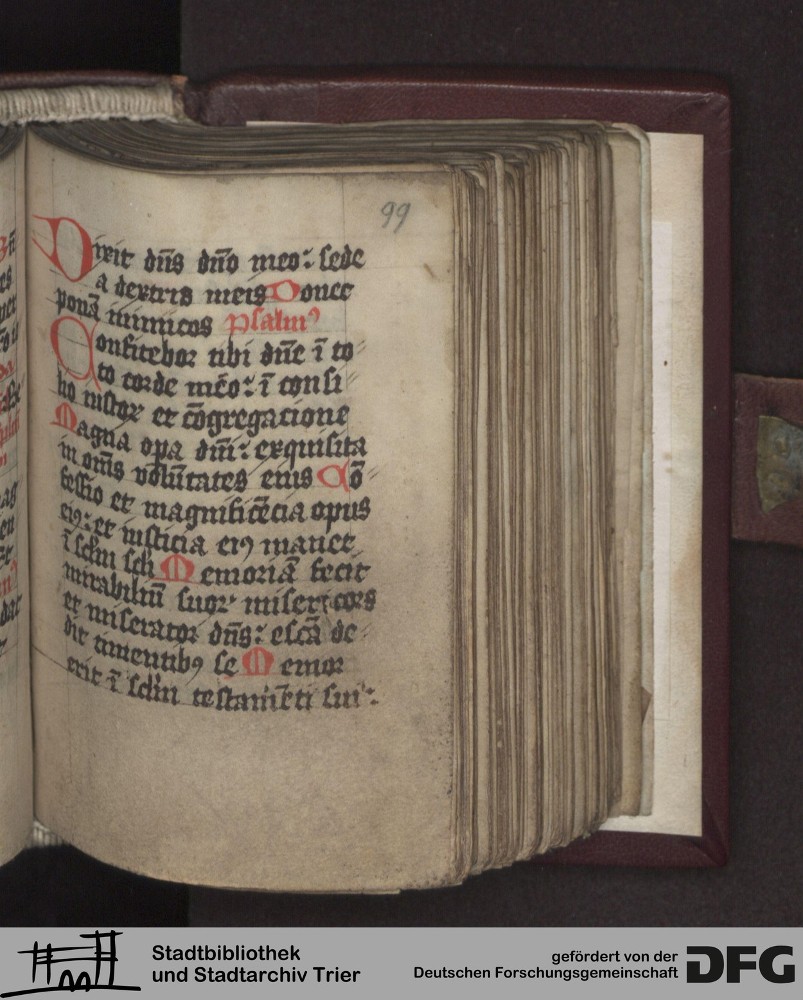 99
Dixit dn̄s dn̄o meo: sede
a dextris meis Donec
ponā inimicos psalmꝰ
Confitebor tibi dn̄e ī to
to corde meo: ī consi
lio iustoꝝ et cōgregacione
Magna opa dn̄i: exquisita
in om̄s volūtates eius Cō
fessio et magnificēcia opus
eiꝰ: et iusticia eiꝰ manet
ī sclm̄ scli Memoriā fecit
mirabiliū suoꝝ misericors
et miserator dn̄s: escā de
dit timentibꝰ se Memor
erit ī sclm̄ testamēti sui:
Stadtbibliothek
und Stadtarchiv Trier
gefördert von der
Deutschen Forschungsgemeinschaft
DFG